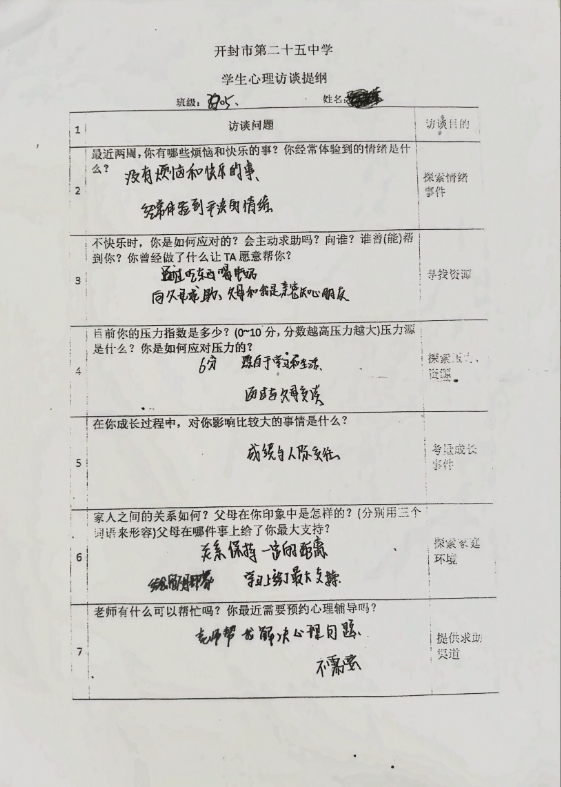 开封市第二十五中学
学生心理访谈提纲
班级： 姓名：
1 访谈问题 访谈目的
最近两周，你有哪些烦恼和快乐的事？你经常体验到的情绪是什
么？ 没有烦恼和快乐的事
2 探索情绪
事件
经常体验到平淡的情绪
不快乐时，你是如何应对的？会主动求助吗？向谁？谁曾(能)帮
到你？你曾经做了什么让TA愿意帮你？
3 吃东西 喝 寻找资源
向父母求助，父母和我是亲密知心朋友
目前你的压力指数是多少？(0~10分，分数越高压力越大)压力源
是什么？你是如何应对压力的？
4 6分 来自于学习和生活 探索压力、
资源
与父母交谈
在你成长过程中，对你影响比较大的事情是什么？
成绩与人际交往
5 考量成长
事件
家人之间的关系如何？父母在你印象中是怎样的？(分别用三个
词语来形容)父母在哪件事上给了你最大支持？
6 关系保持一定的距离 探索家庭
环境
学习上给了最大支持
老师有什么可以帮忙吗？你最近需要预约心理辅导吗？
7 老师帮我解决心理问题 提供求助
渠道
不需要